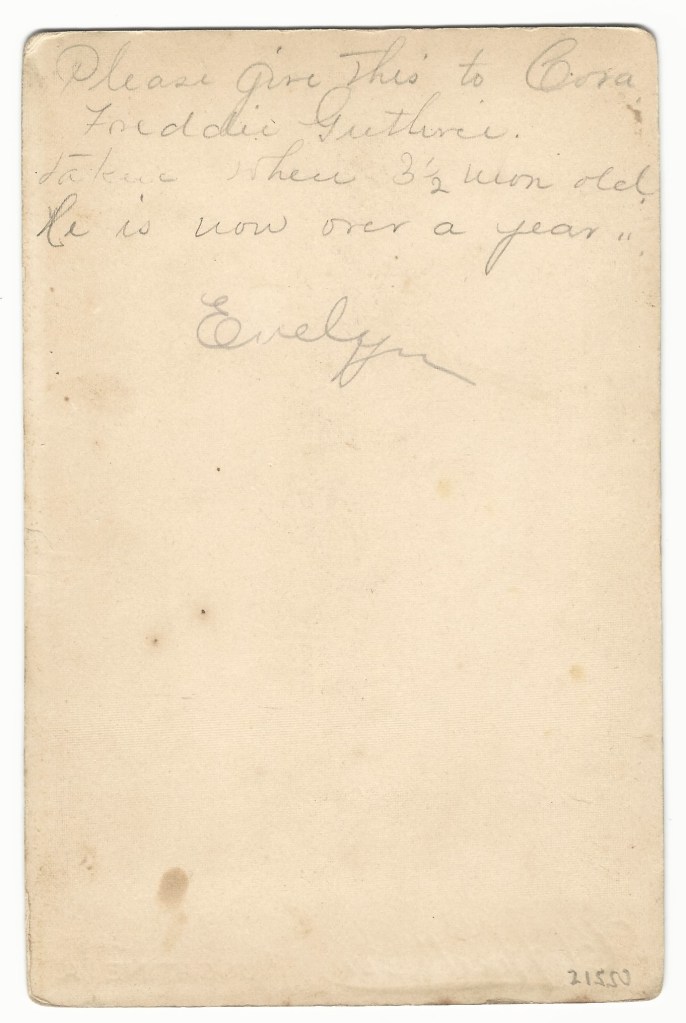 Please give this to Cora
Freddie Guthrie.
taken when 3½ mon old.
He is now over a year "
Evelyn
21550